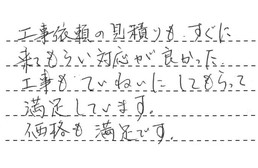 工事依頼の見積りも すぐに
来てもらい対応が良かった
工事も ていねいに してもらって
満足しています。
価格も満足です。